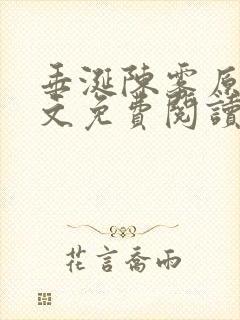 垂涎陳霧原
文免費閱讀
花言喬雨